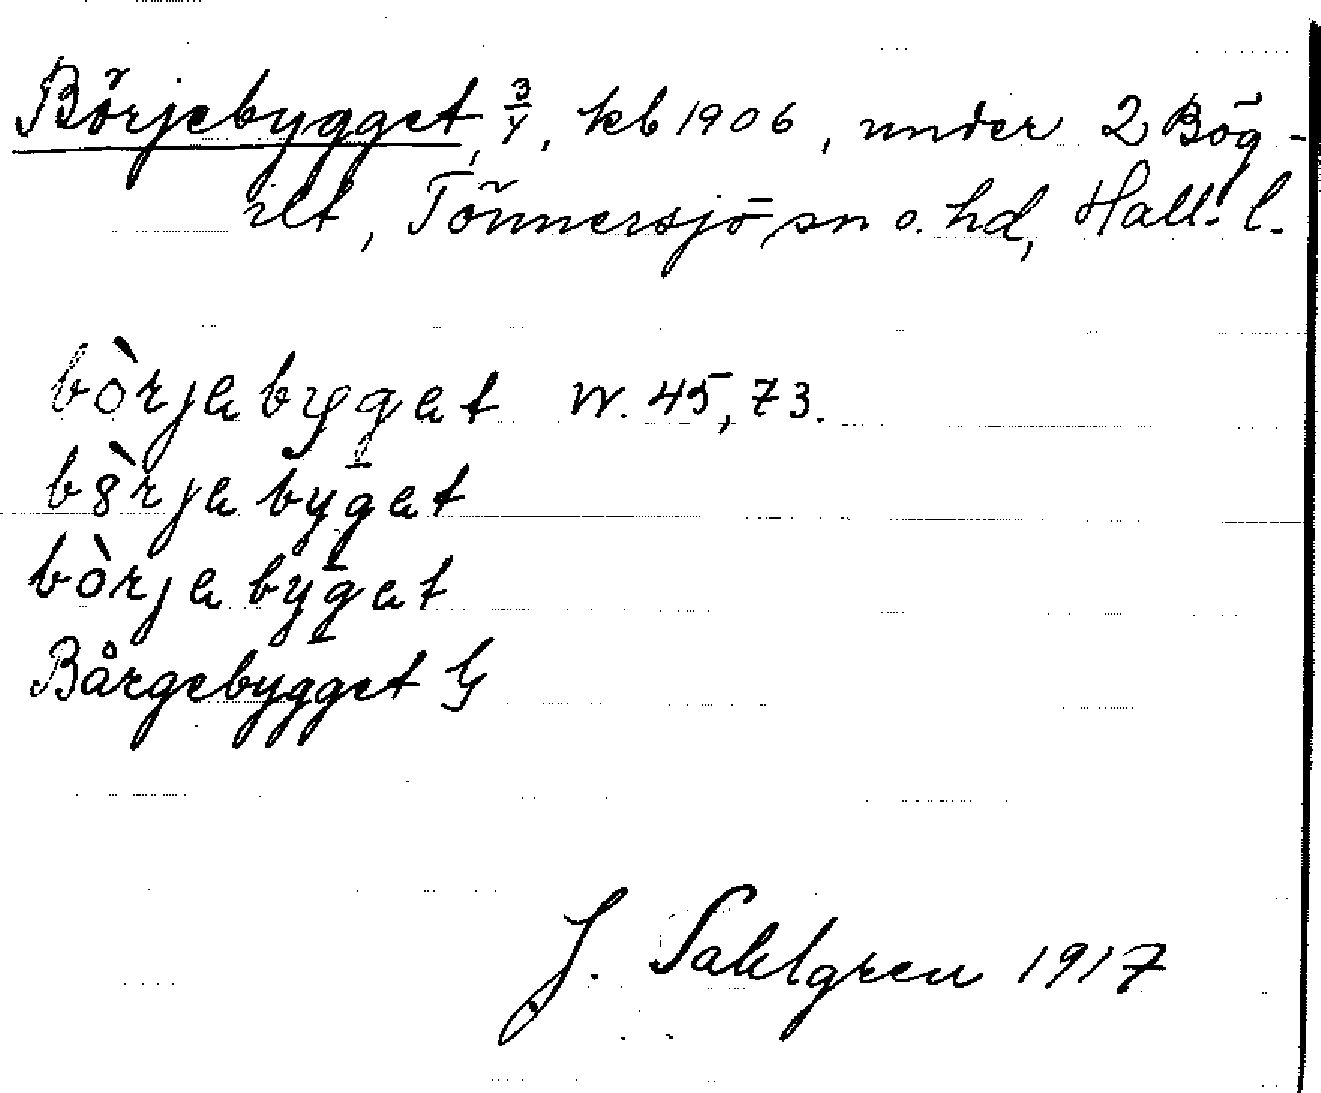 Börjebygget, 3/4, kb 1906, under 2 Bög-
rlt, Tönnersjö sn o. hd, Hall. l.
bòrjabygat W. 45,73.
bòrjabygat
bòrjabygat
Bårgebygget G
J. Sahlgren 1917